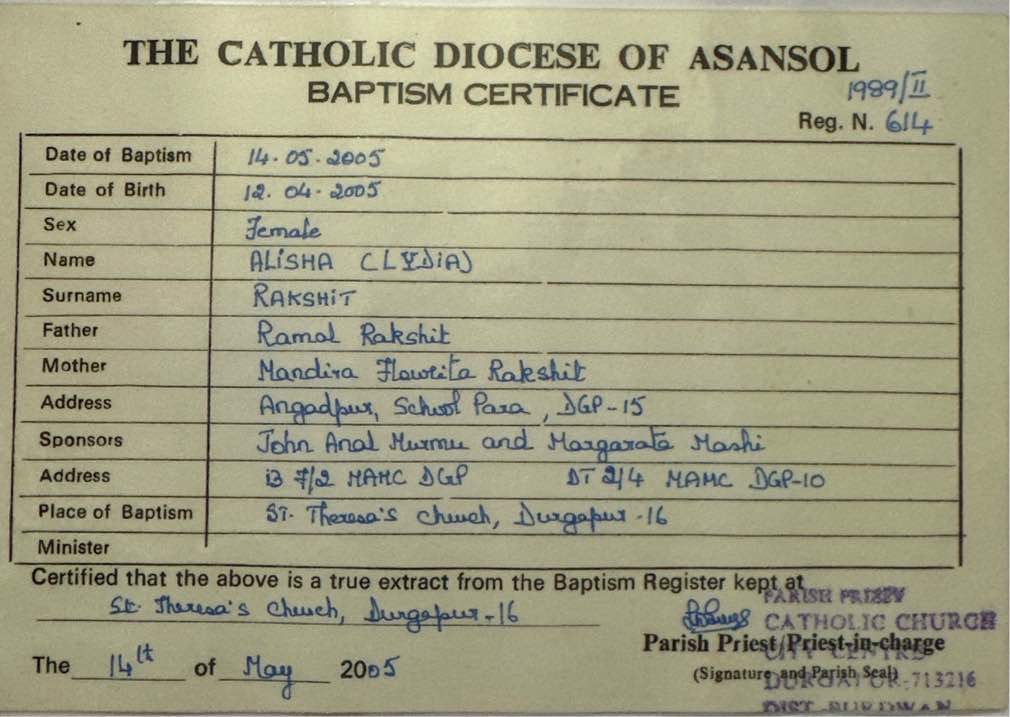 THE CATHOLIC DIOCESE OF ASANSOL
BAPTISM CERTIFICATE
1989/II
Reg. N. 614
Date of Baptism 14.05.2005
Date of Birth 12.04.2005
Sex Female
Name ALISHA (LYDIA)
Surname RAKSHIT
Father Ramal Rakshit
Mother Mandira Flowrita Rakshit
Address Angadpur, School Para, DGP-15
Sponsors John Anal Murmu and Margarata Mashi
Address B 7/2 MAMC DGP DT 2/4 MAMC DGP-10
Place of Baptism ST. Theresa's Church, Durgapur-16
Minister
Certified that the above is a true extract from the Baptism Register kept at
St. Theresa's Church, Durgapur-16
PARISH PRIEST
CATHOLIC CHURCH
Parish Priest/Priest-in-charge
CITY CENTRE
The 14th of May 2005
(Signature and Parish Seal)
DURGAPUR-713216
DIST. BURDWAN